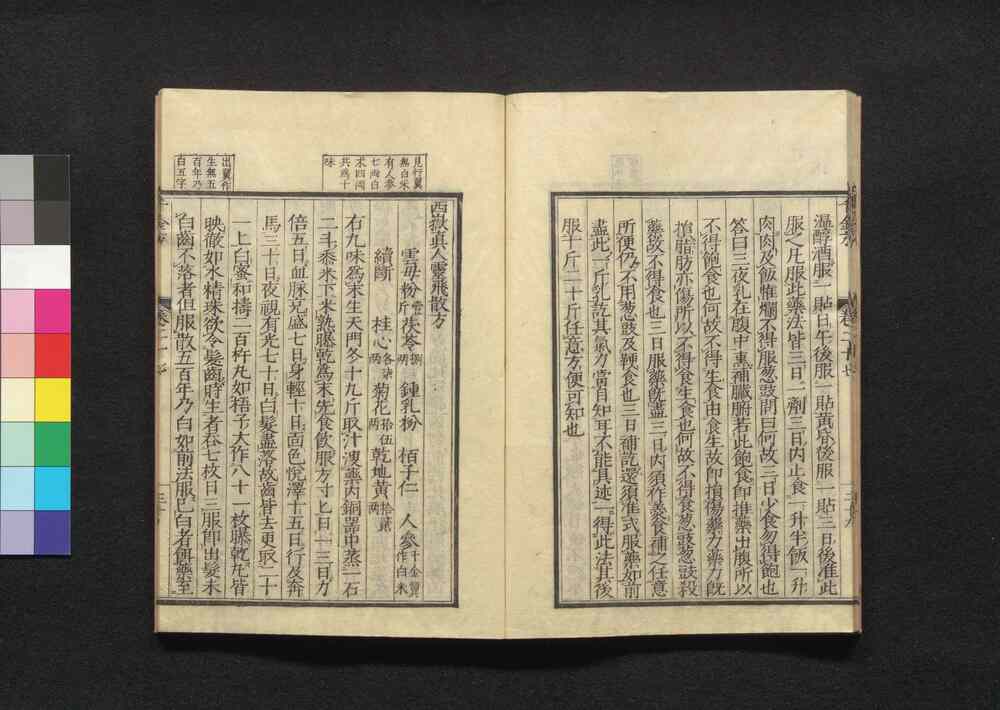 溫醇酒服一貼日午後服一貼黄昏後服一貼三日後准此
服之凡服此藥法皆三日一劑三日内止食一升半飯一升
肉肉及飯惟爛不得服葱豉問曰何故三日少食勿得飽也
答曰三夜乳在腹中熏補臓腑若此飽食即推藥出腹所以
不得飽食也何故不得生食由食生故即損傷藥力藥力既
損脂肪亦傷所以不得食生食也何故不得食葱豉葱豉殺
藥故不得食也三日服藥既盡三日内須作羹食補之任意
所便仍不用葱豉及鞕食也三日補訖還須准式服藥如前
盡此一斤乳訖其氣力當自知耳不能具述一得此法其後
服十斤二十斤任意方便可知也
西嶽真人靈飛散方
雲母粉 茯苓 鍾乳粉 栢子仁 人參 千金翼作白朮
續斷 桂心 各柒兩 菊花 拾伍兩 乾地黄 拾貳兩
右九味爲末生天門冬十九斤取汁溲藥内銅器中蒸一石
二斗黍米下米熟曝乾爲末先食飲服方寸匕日一三日力
倍五日血脉充盛七日身輕十日面色悅澤十五日行及奔
馬三十日夜視有光七十日白髮盡落故齒皆去更取二十
一匕白蜜和擣二百杵丸如梧子大作八十一枚曝乾丸皆
映徹如水精珠欲令髮齒時生者吞七枚日三服即出髮未
白齒不落者但服散五百年乃白如前法服已白者餌藥至
見行翼
無白朮
有人參
七兩白
朮四兩
共爲十
味
出翼作
生無五
百年乃
白五字